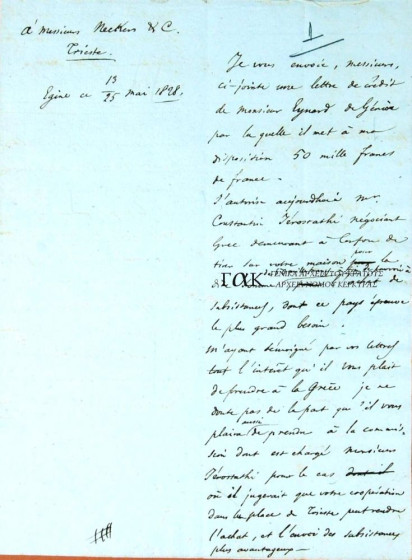 à Messieurs Neckers & C.
Trieste.
Egine ce 13/25 mai 1828.
1
Je vous envoie, messieurs,
ci-jointe une lettre de crédit
de monsieur Eynard de Genève
par la quelle il met à ma
disposition 50 mille francs
de france.
J'autorise aujourdhui Mr.
Constantin Gérostathi négociant
Grec demeurant à Corfou de
tirer sur votre maison pour la
ΓΑΚ
ΓΕΝΙΚΑ ΑΡΧΕΙΑ ΤΟΥ ΚΡΑΤΟΥΣ
ΑΡΧΕΙΑ ΝΟΜΟΥ ΚΕΡΚΥΡΑΣ
de
subsistances, dont ce pays éprouve
le plus grand besoin.
M'ayant témoigné par vos lettres
tout l'intérêt qu'il vous plait
de prendre à la Grèce je ne
doute pas de la part qu'il vous
plaira aussi de prendre à la commis-
sion dont est chargé monsieur
Gérostathi pour le cas dont il
où il jugerait que votre coopération
dans la place de Trieste peut rendre
l'achat, et l'envoi des subsistances
plus avantageux —